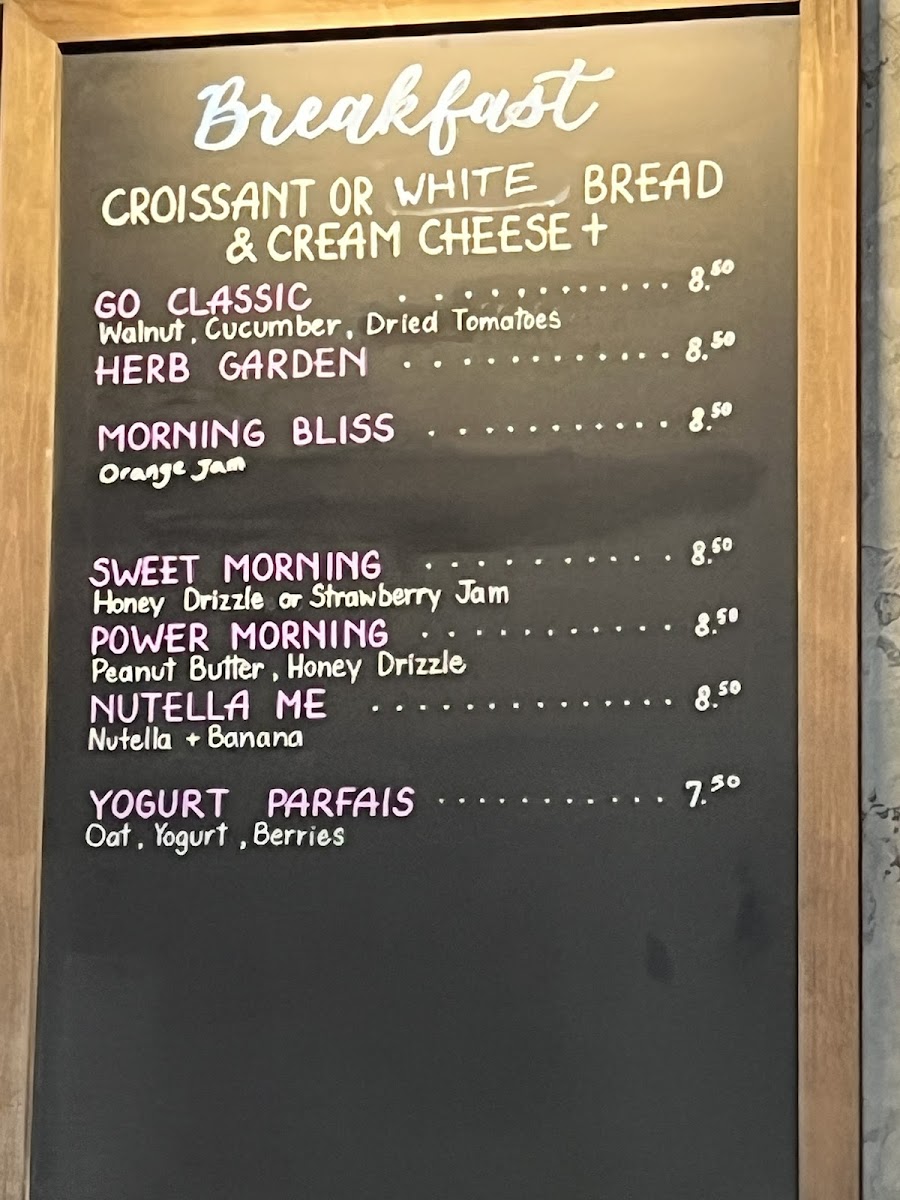 Breakfast
CROISSANT OR WHITE BREAD
& CREAM CHEESE +
GO CLASSIC . . . . . . . . . . . 8.50
Walnut, Cucumber, Dried Tomatoes
HERB GARDEN . . . . . . . . . . . 8.50
MORNING BLISS . . . . . . . . . . 8.50
Orange Jam
SWEET MORNING . . . . . . . . . . 8.50
Honey Drizzle or Strawberry Jam
POWER MORNING . . . . . . . . . . 8.50
Peanut Butter, Honey Drizzle
NUTELLA ME . . . . . . . . . . . . . 8.50
Nutella + Banana
YOGURT PARFAIS . . . . . . . . . . . 7.50
Oat, Yogurt, Berries